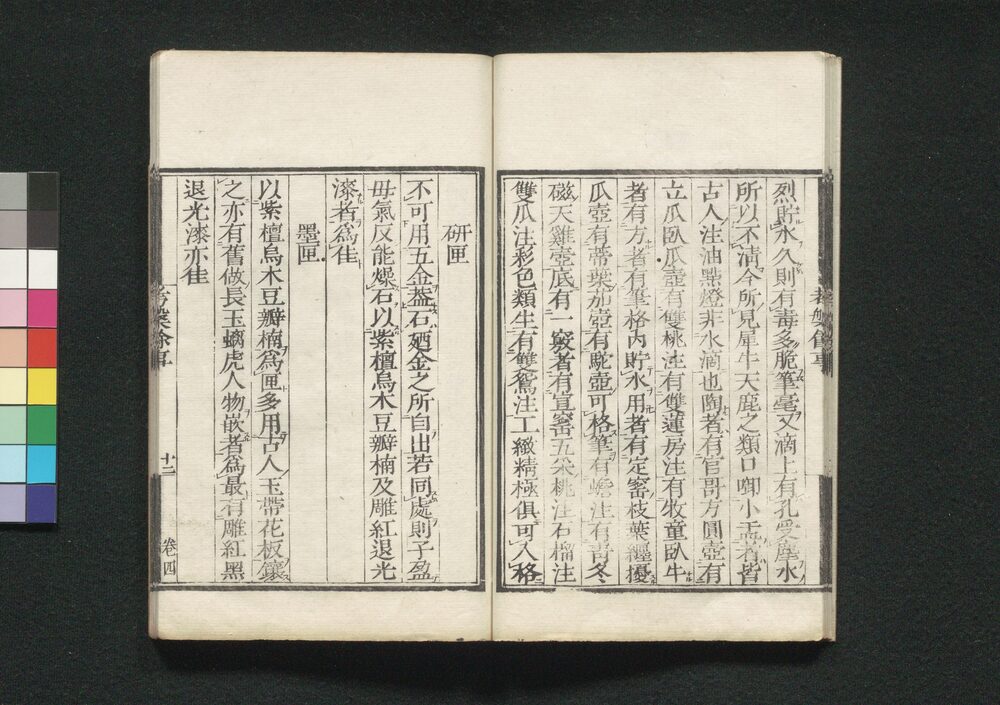 烈貯水久則有毒多脆筆毫又滴上有孔受塵水
所以不淸今所見犀牛天鹿之類口啣小盂者皆
古人注油點燈非水滴也陶者有官哥方圓壺有
立瓜臥瓜壺有雙桃注有雙蓮房注有牧童臥牛
者有方者有筆格內貯水用者有定窰枝葉纏擾
瓜壺有蒂葉茄壺有駝壺可格筆有蟾注有靑冬
磁天雞壺底有一竅者有宣窰五朵桃注石榴注
雙瓜注彩色類生有雙鴛注工緻精極俱可入格
考槃餘事
硏匣
不可用五金蓋石廼金之所自出若同處則子盈
母氣反能燥石以紫檀烏木豆瓣楠及雕紅退光
漆者爲佳
墨匣
以紫檀烏木豆瓣楠爲匣多用古人玉帶花板鑲
之亦有舊做長玉螭虎人物嵌者爲最有雕紅黑
退光漆亦佳
考槃餘事
十二
卷四